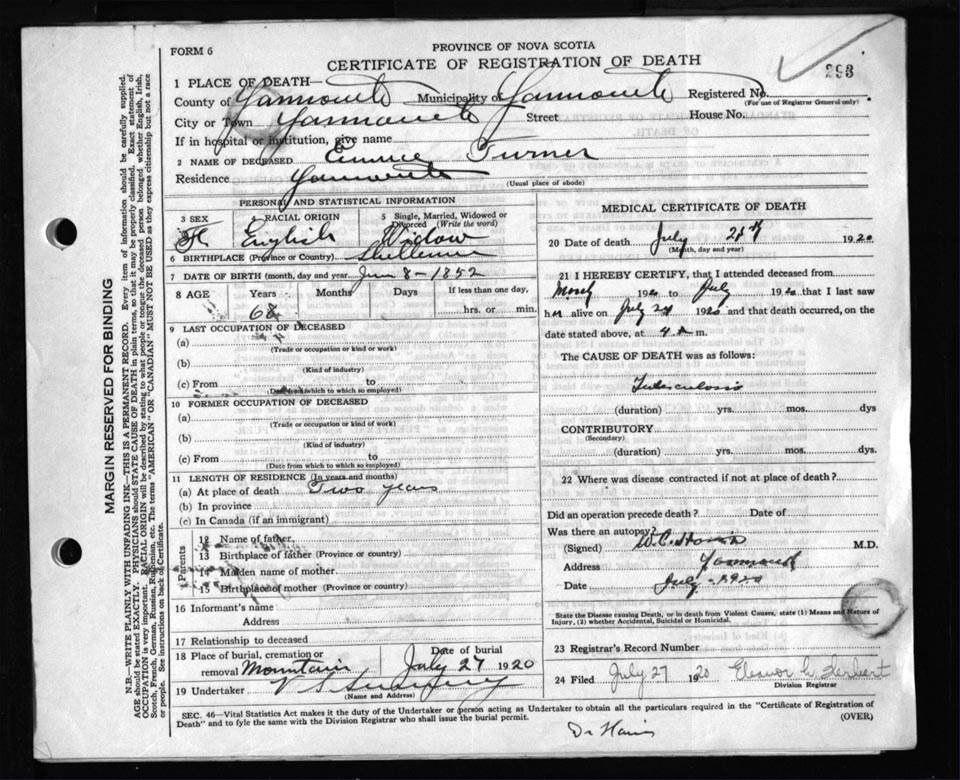 FORM 6
PROVINCE OF NOVA SCOTIA
CERTIFICATE OF REGISTRATION OF DEATH
293
1 PLACE OF DEATH—
County of Yarmouth Municipality of Yarmouth Registered No.
(For use of Registrar General only)
City or Town Yarmouth Street House No.
If in hospital or institution, give name
2 NAME OF DECEASED Turner
Residence Yarmouth
(Usual place of abode)
PERSONAL AND STATISTICAL INFORMATION
3 SEX RACIAL ORIGIN 5 Single, Married, Widowed or Divorced (Write the word)
English Widow
6 BIRTHPLACE (Province or Country)
7 DATE OF BIRTH (month, day and year) 8 - 1852
8 AGE Years Months Days If less than one day,
68 hrs. or min.
9 LAST OCCUPATION OF DECEASED
(a)
(Trade or occupation or kind or work)
(b)
(Kind of industry)
(c) From to
(Date from which to which so employed)
10 FORMER OCCUPATION OF DECEASED
(a)
(Trade or occupation or kind of work)
(b)
(Kind of industry)
(c) From to
(Date from which to which so employed)
11 LENGTH OF RESIDENCE (In years and months)
(a) At place of death Two years
(b) In province
(c) In Canada (if an immigrant)
Parents
12 Name of father
13 Birthplace of father (Province or country)
14 Maiden name of mother
15 Birthplace of mother (Province or country)
16 Informant's name
Address
17 Relationship to deceased
18 Place of burial, cremation or Date of burial
removal Mountain July 27 1920
19 Undertaker
(Name and Address)
MEDICAL CERTIFICATE OF DEATH
20 Date of death July 1920
(Month, day and year)
21 I HEREBY CERTIFY, that I attended deceased from
1920 to July 1920 that I last saw
her alive on July 24 1920 and that death occurred, on
date stated above, at 4 a m.
The CAUSE OF DEATH was as follows:
Tuberculosis
(duration) yrs. mos. dys
CONTRIBUTORY
(Secondary)
(duration) yrs. mos. dys
22 Where was disease contracted if not at place of death?
Did an operation precede death? Date of
Was there an autopsy?
(Signed) M.D.
Address Yarmouth
Date July - 1920
State the Disease causing Death, or in death from Violent Causes, state (1) Means and Nature of
Injury, (2) whether Accidental, Suicidal or Homicidal.
23 Registrar's Record Number
24 Filed July 27 1920 Eleanor Herbert
Division Registrar
SEC. 46—Vital Statistics Act makes it the duty of the Undertaker or person acting as Undertaker to obtain all the particulars required in the "Certificate of Registration of
Death" and to fyle the same with the Division Registrar who shall issue the burial permit.
(OVER)
MARGIN RESERVED FOR BINDING
N.B.—WRITE PLAINLY WITH UNFADING INK—THIS IS A PERMANENT RECORD. Every item of information should be carefully supplied.
AGE should be stated EXACTLY. PHYSICIANS should STATE CAUSE OF DEATH in plain terms, so that it may be properly classified. Exact statement of
OCCUPATION is very important. RACIAL ORIGIN will be described by stating to what people or tongue the deceased person belonged whether English, Irish,
Scotch, French, German, Russian, Ruthenian, etc. The terms "AMERICAN" or "CANADIAN" MUST NOT BE USED as they express citizenship but not a race
or people. See instructions on back of Certificate.